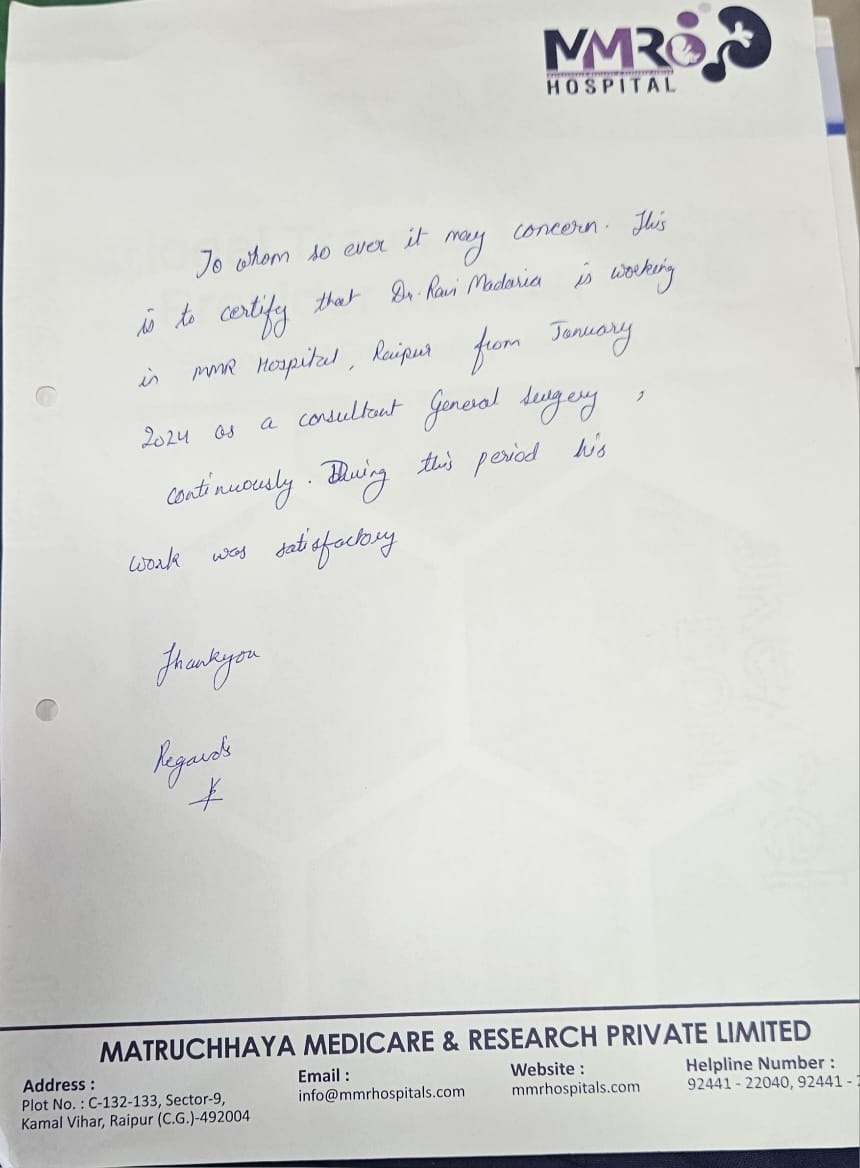 MMR
HOSPITAL
To whom so ever it may concern. This
is to certify that Dr. Ravi Madaria is working
in MMR Hospital, Raipur from January
2024 as a consultant General Surgery,
continuously. During this period his
work was satisfactory
Thankyou
Regards
MATRUCHHAYA MEDICARE & RESEARCH PRIVATE LIMITED
Address :
Plot No. : C-132-133, Sector-9,
Kamal Vihar, Raipur (C.G.)-492004
Email :
info@mmrhospitals.com
Website :
mmrhospitals.com
Helpline Number :
92441 - 22040, 92441 -